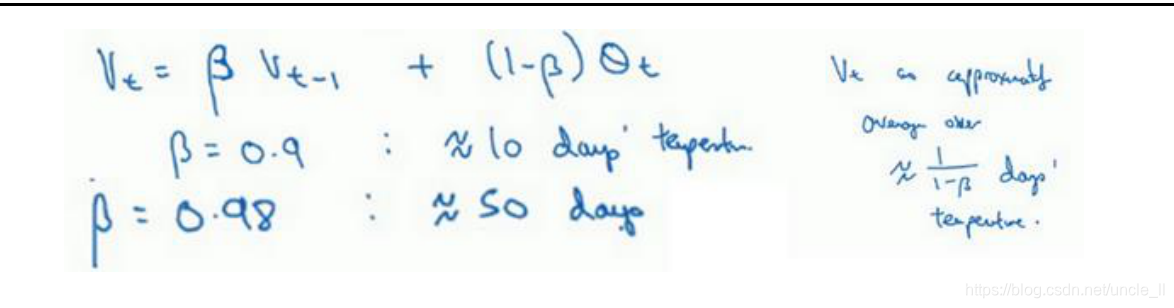 V_t = β V_{t-1} + (1-β) θ_t
β = 0.9 : ≈ 10 days' temperature.
β = 0.98 : ≈ 50 days
V_t as approximately
average over
≈ 1/(1-β) days'
temperature.
https://blog.csdn.net/uncle_ll